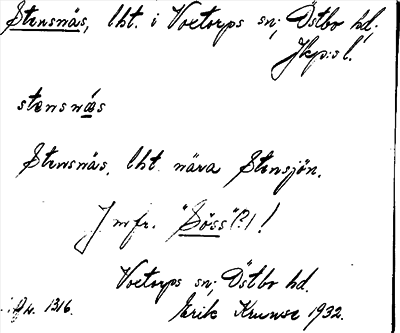 Stensnäs, lht. i Voxtorps sn; Östbo hd;
Jkp:s l.
stensnæs
Stensnäs, lht nära Stensjön.
Jmfr. "Söss" (?:)!
Voxtorps sn; Östbo hd.
Av. 1316.
Erik Krunse 1932.